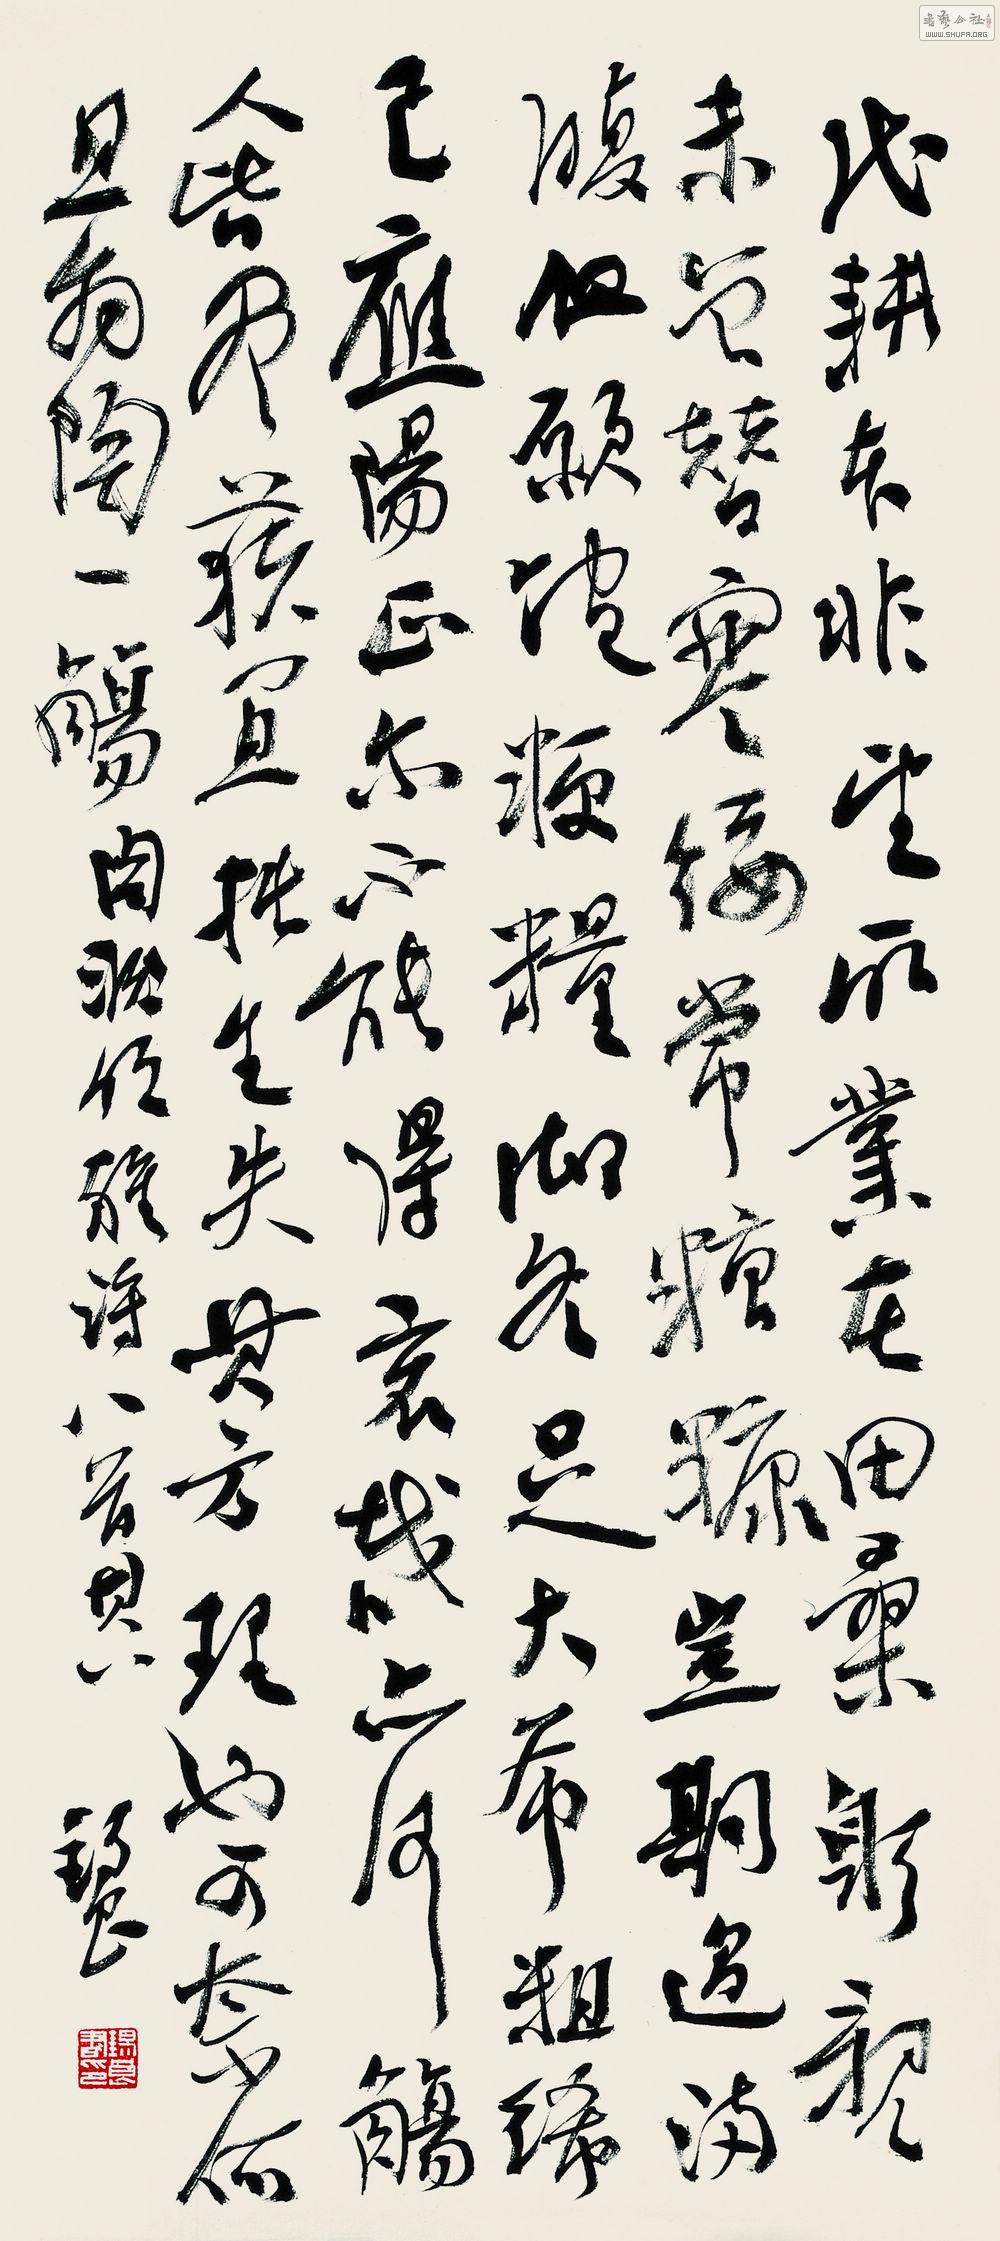 代耕本非望所業在田桑躬親
未曾替寒餒常糟糠豈期過滿
腹但願飽粳糧御冬足大布粗絺
已應陽正尔不能得哀哉亦可觴
人皆尽獲宜拙生失其方理也可奈何
且為陶一觴 雜詩八首其八
书艺公社
WWW.SHUFA.ORG